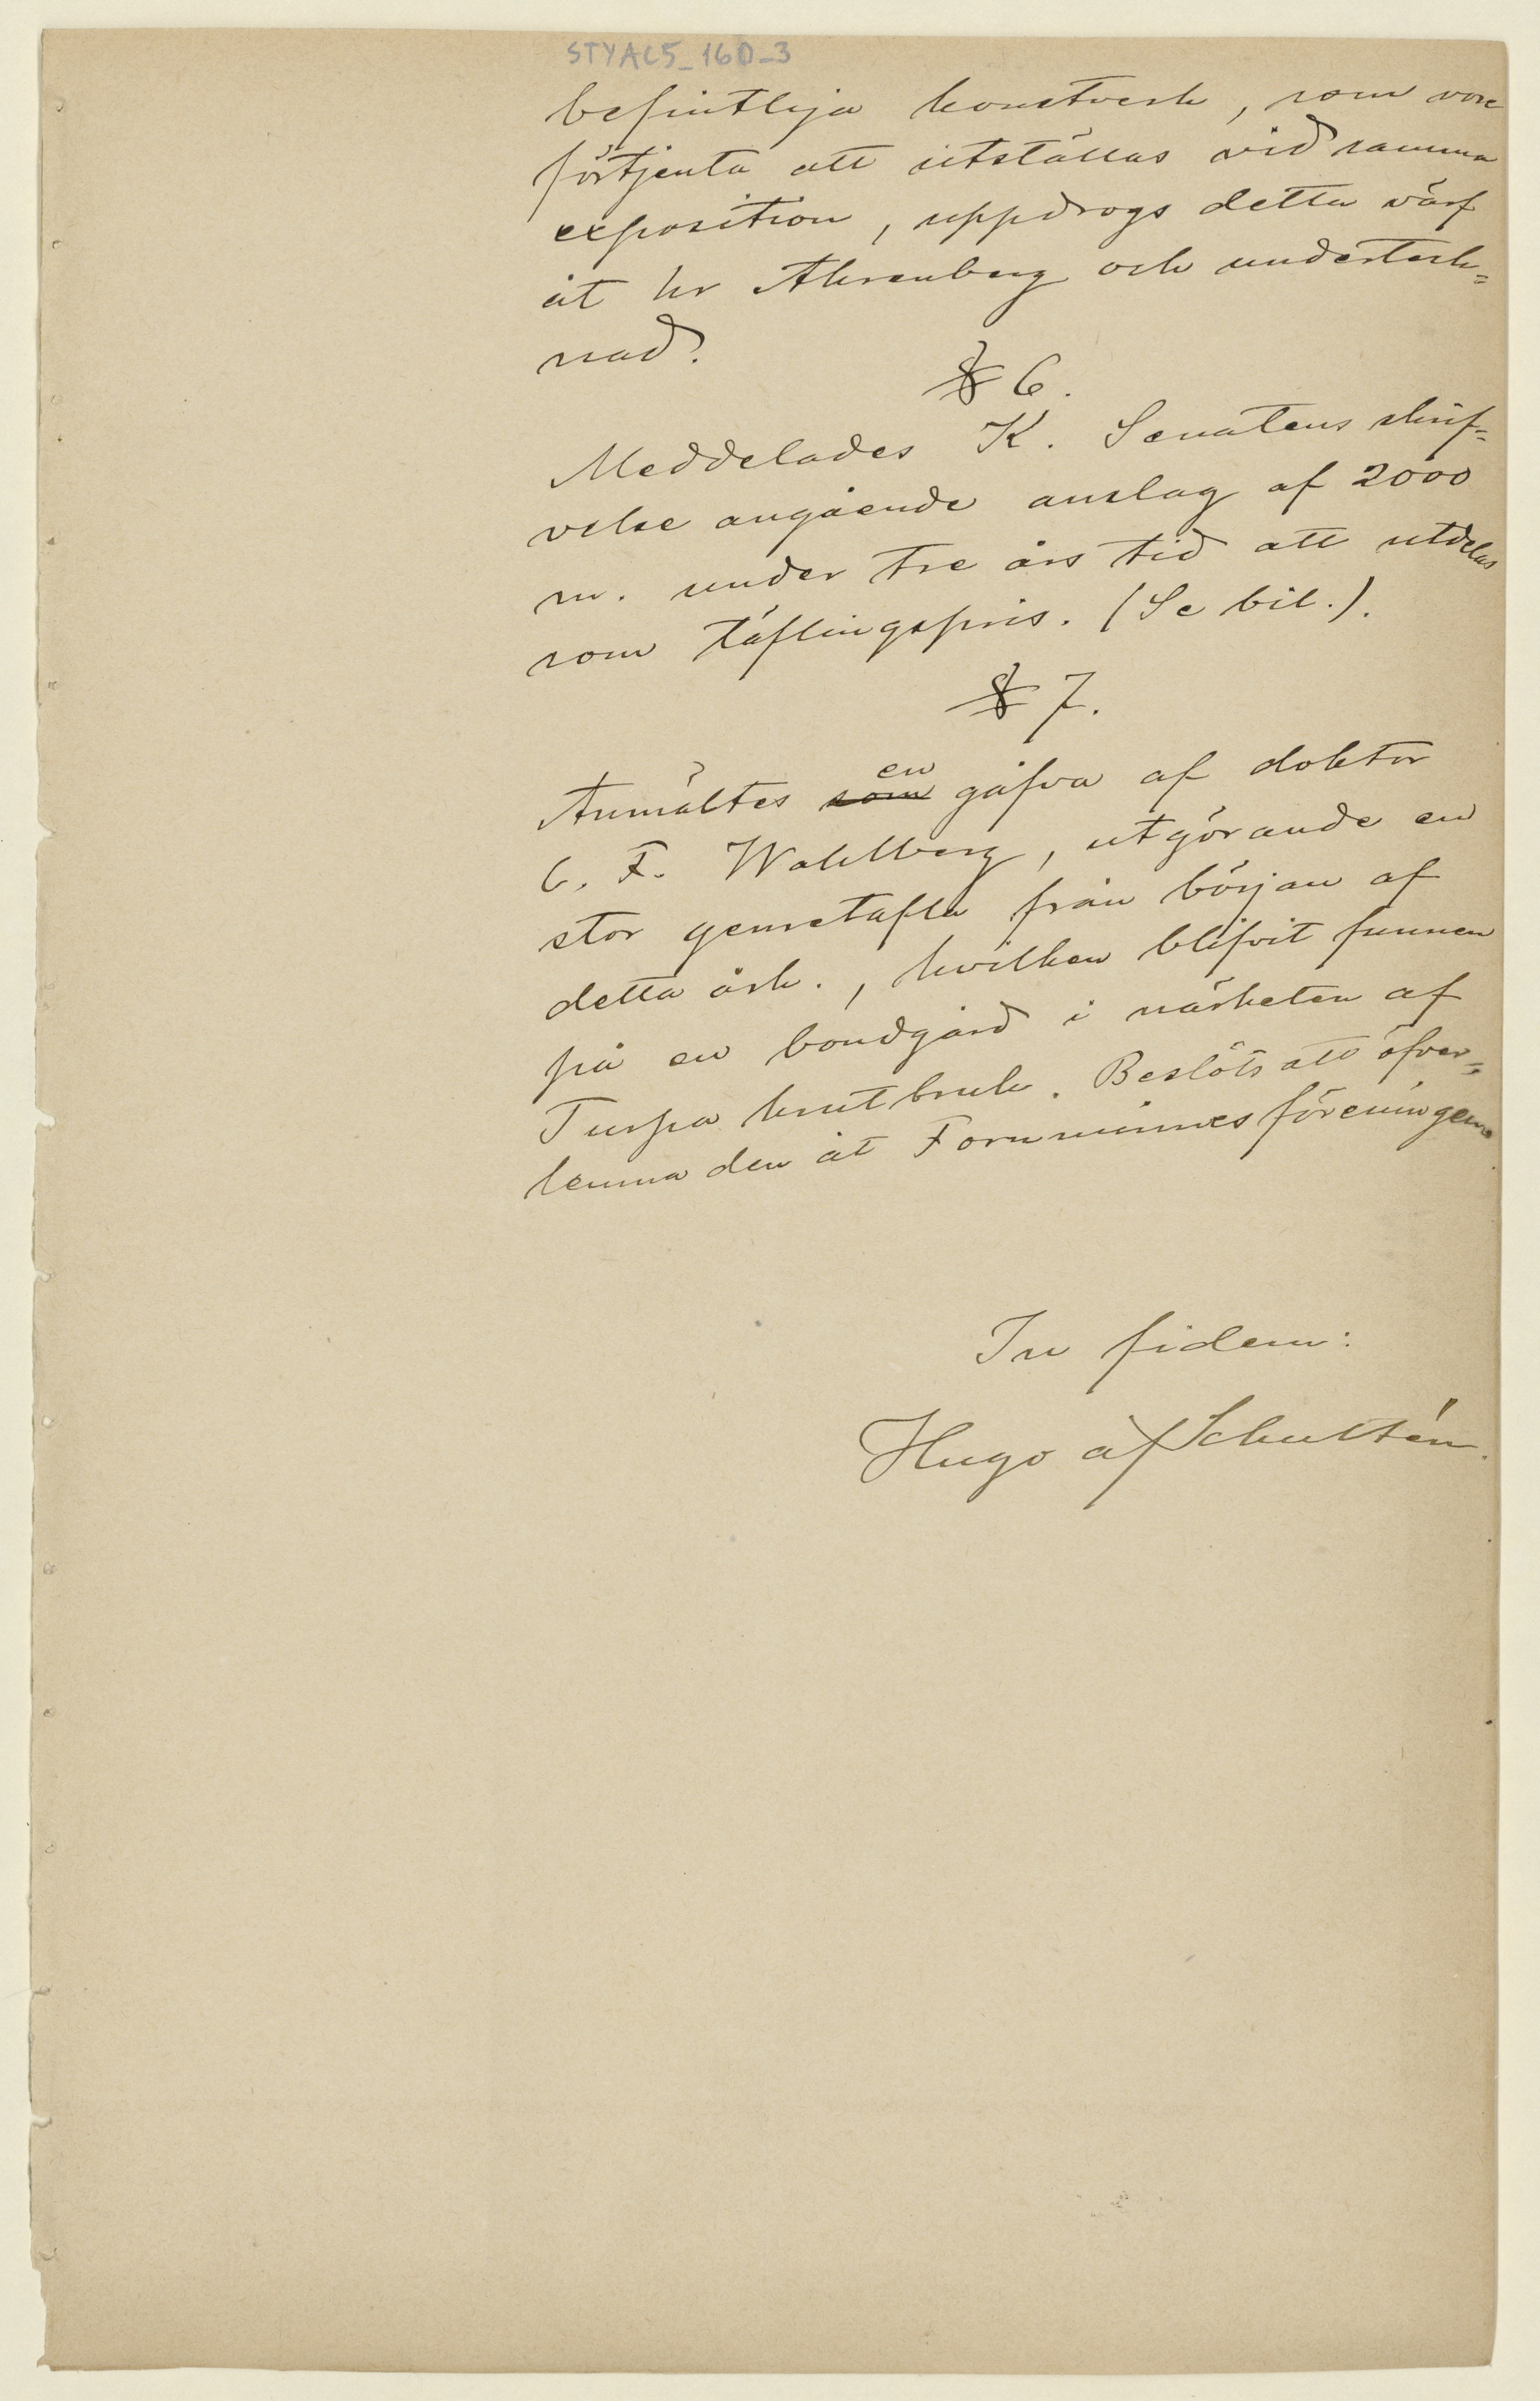 STYAC5_160_3
befintliga konstverk, som vore
förtjenta att utställas vid samma
exposition, uppdrogs detta värf
åt hr Ahrenberg och underteck=
nad.
§ 6.
Meddelades K. Senatens skrif=
velse angående anslag af 2000
m. under tre års tid att utdelas
som täflingspris. (Se bil.).
§ 7.
Anmältes som en gåfva af doktor
C. F. Wahlberg, utgörande en
stor genretafla från början af
detta årh., hvilken blifvit funnen
på en bondgård i närheten af
Turpa krutbruk. Beslöts att öfver=
lemna den åt Fornminnesföreningen.
In fidem:
Hugo af Schultén.